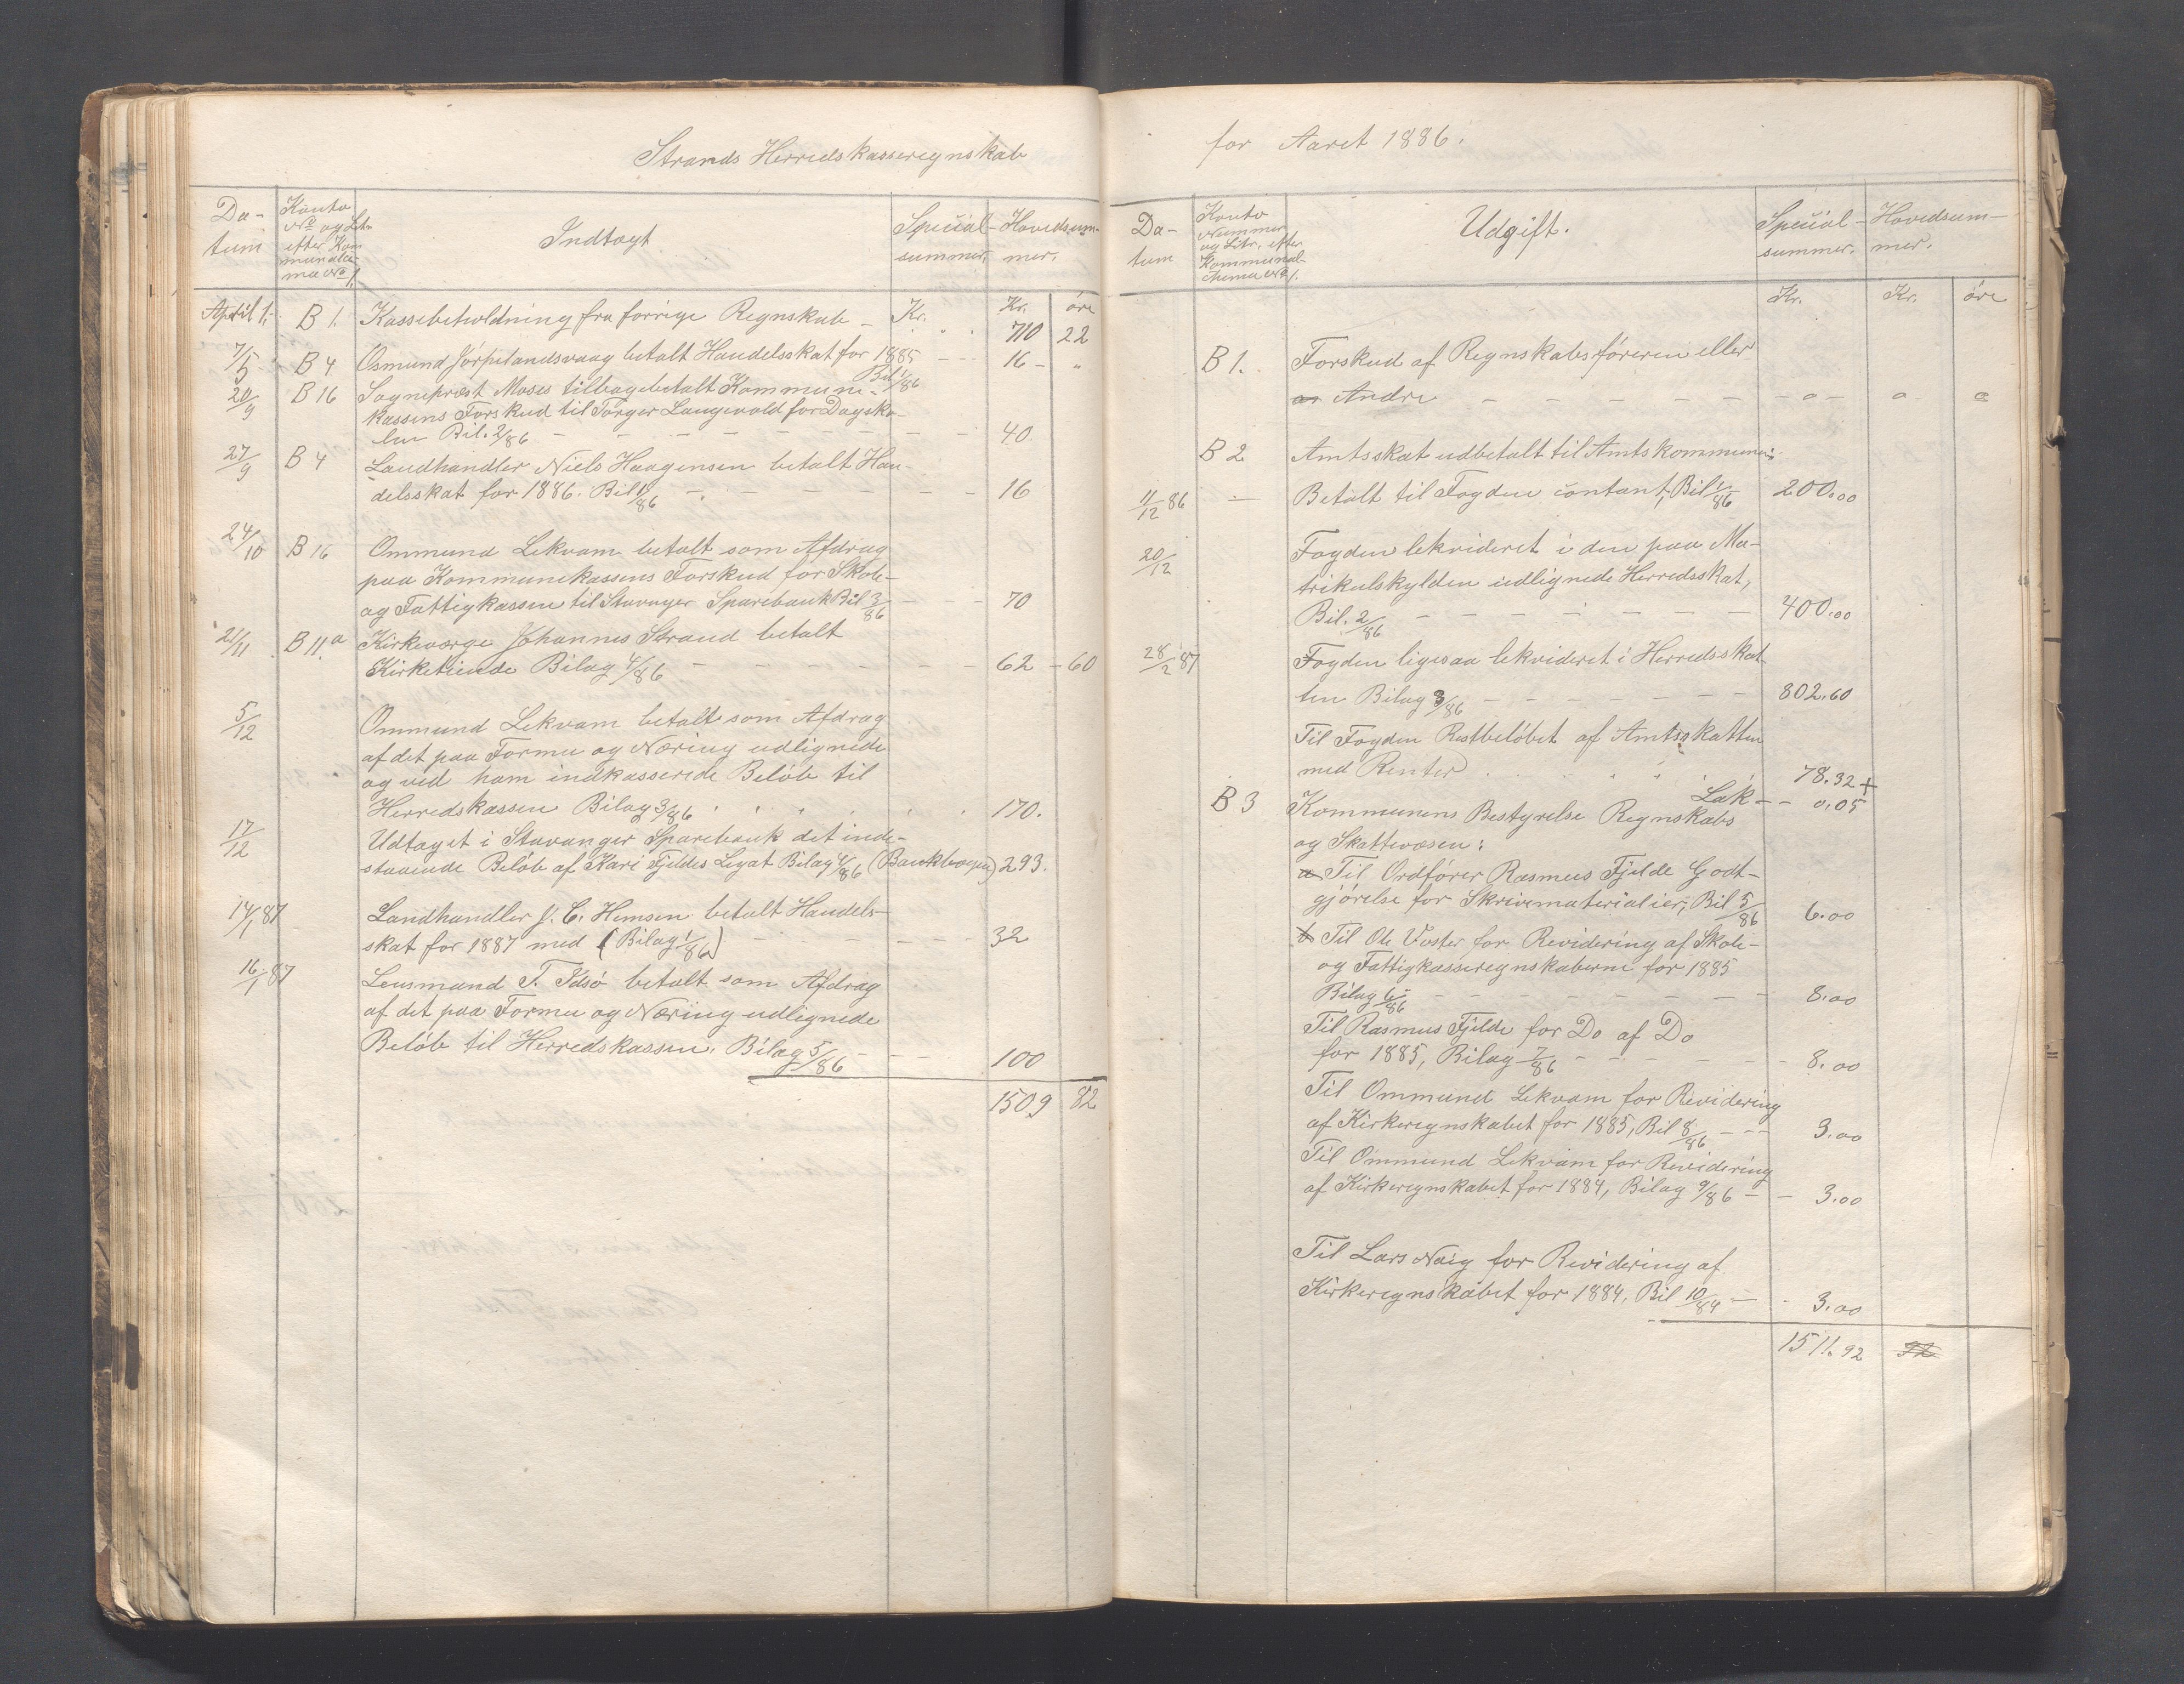 Strands Herredskasseregnskab
Da-
tum
Konto
No og Litr
efter Kom
munalsce-
ma No 1.
Indtægt
Special-
summer.
Hovedsum-
mer.
April 1. B 1. Kassebeholdning fra forrige Regnskab – Kr. Kr. øre
710 22
7/5 B 4 Osmund Jørpelandsvaag betalt Handelsskat for 1885 – – 16 – "
Bil 1/86
20/9 B 16 Sognepræst Moses tilbagebetalt Kommune-
kassens Forskud til Torger Langevold for Dagsko-
len Bil. 2/86 – – – – – – – 40.
27/9 B 4 Landhandler Niels Haagensen betalt Han-
delsskat for 1886. Bil 1/86 – – – – – – 16
24/10 B 16 Ommund Lekvam betalt som Afdrag
paa Kommunekassens Forskud for Skole-
og Fattigkassen til Stavanger Sparebank Bil 3/86 – – – 70
21/11 B 11.a Kirkeværge Johannes Strand betalt
Kirketiende Bilag 4/86 – – – – – – 62 – 60
5/12 Ommund Lekvam betalt som Afdrag
af det paa Formue og Næring udlignede
og ved ham indkasserede Beløb til
Herredskassen Bilag 3/86 170.
17/12 Udtaget i Stavanger Sparebank det inde-
staaende Beløb af Kari Fjeldes Legat Bilag 4/86 (Bankbogen) 293.
14/1 87 Landhandler J. C. Hemsen betalt Handels-
skat for 1887 med (Bilag 1/86) – – – – – 32
16/1 87 Lensmand T. Idsø betalt som Afdrag
af det paa Formue og Næring udlignede
Beløb til Herredskassen. Bilag 5/86 – – – 100
1509 82
for Aaret 1886.
Da-
tum
Konto
Nummer
og Litr. efter
Kommunal-
schema No 1.
Udgift.
Special-
summer.
Hovedsum-
mer.
Kr. Kr. øre
B 1. Forskud af Regnskabsføreren eller
Andre – – – – – – – o – o o
B 2 Amtsskat udbetalt til Amtskommunen:
11/12 86 — Betalt til Fogden contant, Bil 1/86 200.00
20/12 Fogden lekvideret i den paa Ma-
trikulskylden udlignede Herredsskat,
Bil. 2/86 – – – – – – – 400.00
28/2 87 Fogden ligesaa lekvideret i Herredsskat-
ten Bilag 3/86 – – – – – – – 802.60
Til Fogden Restbeløbet af Amtsskatten
med Renter 78.32 +
Lak – – 0.05
B 3 Kommunens Bestyrelse Regnskabs
og Skattevæsen:
a Til Ordfører Rasmus Fjelde Godt-
gjørelse for Skrivematerialier, Bil 5/86 6.00
b Til Ole Voster for Revidering af Skole-
og Fattigkasseregnskaberne for 1885
Bilag 6/86 – – – – – – – 8.00
Til Rasmus Fjelde for Do af Do
for 1885, Bilag 7/86 – – – – – – 8.00
Til Ommund Lekvam for Revidering
af Kirkeregnskabet for 1885, Bil 8/86 – – – 3.00
Til Ommund Lekvam for Revidering
af Kirkeregnskabet for 1884, Bilag 9/86 – – 3.00
Til Lars Nag for Revidering af
Kirkeregnskabet for 1884, Bil 10/84 – – 3.00
1511.92